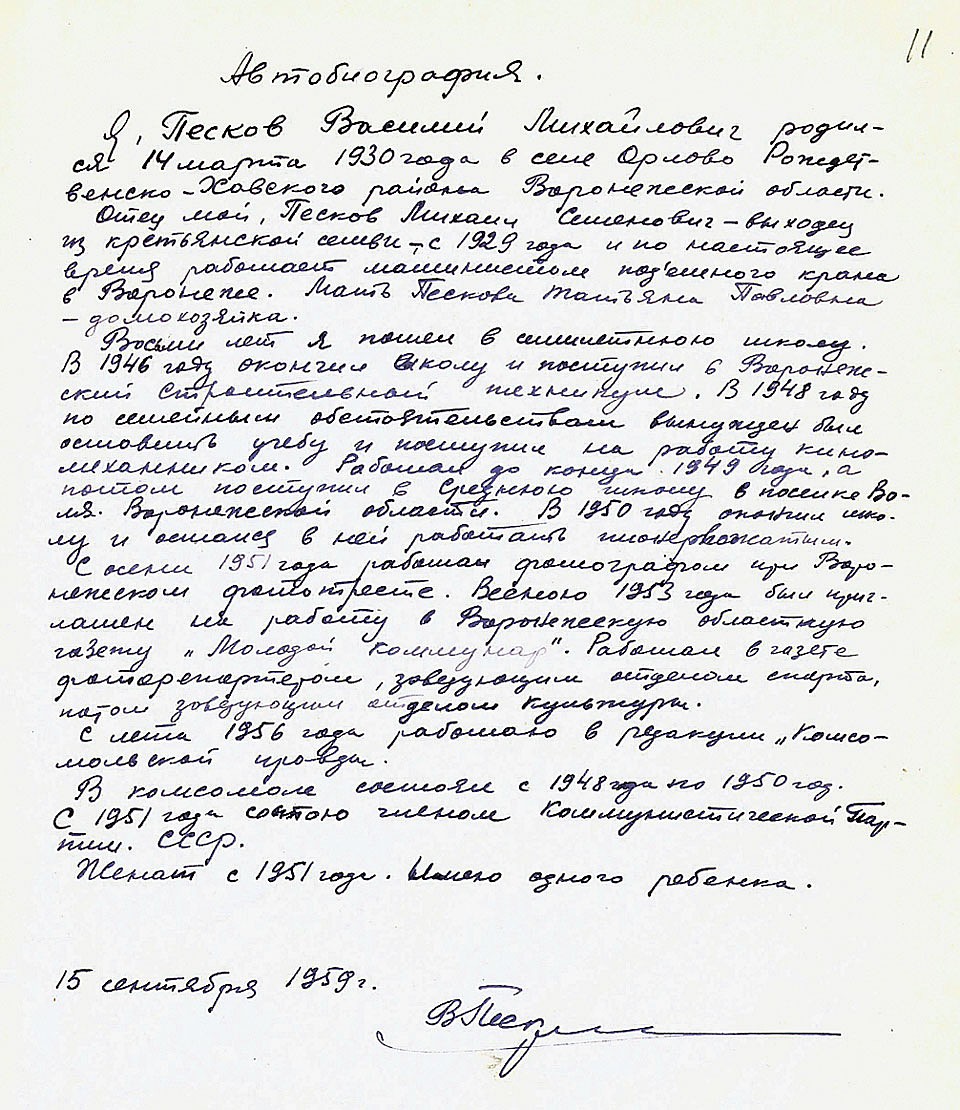 11
Автобиография.
Я, Песков Василий Михайлович родил-
ся 14 марта 1930 года в селе Орлово Рождест-
венско-Хавского района Воронежской области.
Отец мой, Песков Михаил Семенович – выходец
из крестьянской семьи, с 1929 года и по настоящее
время работает машинистом под'емного крана
в Воронеже. Мать Пескова Татьяна Павловна
– домохозяйка.
Восьми лет я пошел в семилетнюю школу.
В 1946 году окончил школу и поступил в Воронеж-
ский строительный техникум. В 1948 году
по семейным обстоятельствам вынужден был
оставить учебу и поступил на работу кино-
механником. Работал до конца 1949 года, а
потом поступил в Среднюю школу в поселке Во-
ля. Воронежской области. В 1950 году окончил шко-
лу и остался в ней работать пионервожатым.
С осени 1951 года работал фотографом при Воро-
нежском фототресте. Весною 1953 года был приг-
лашен на работу в Воронежскую областную
газету „Молодой коммунар". Работал в газете
фоторепортером, заведующим отделом спорта,
потом заведующим отделом культуры.
С лета 1956 года работаю в редакции „Комсо-
мольской правды.
В комсомоле состоял с 1948 года по 1950 год.
С 1951 года состою членом Коммунистической Пар-
тии. СССР.
Женат с 1951 года. Имею одного ребенка.
15 сентября 1959 г.
ВПеск